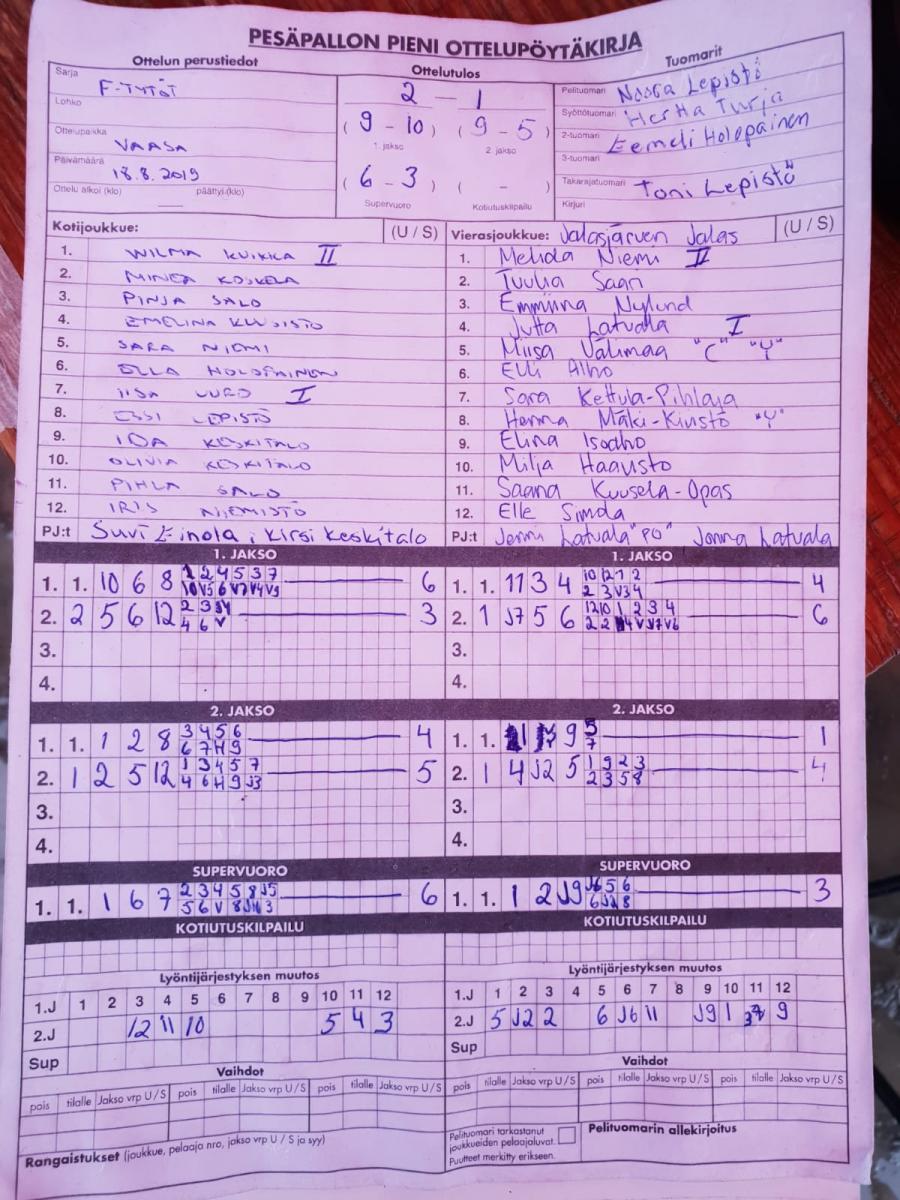 PESÄPALLON PIENI OTTELUPÖYTÄKIRJA
Ottelun perustiedot
Ottelutulos
Tuomarit
Sarja
F-TYTÖT
Lohko
Ottelupaikka
VAASA
Päivämäärä
18.8.2019
Ottelu alkoi (klo) päättyi (klo)
2 — 1
( 9 - 10 ) ( 9 - 5 )
1. jakso 2. jakso
( 6 - 3 ) ( - )
Supervuoro Kotiutuskilpailu
Pelituomari Noora Lepistö
Syöttötuomari Hertta Turja
2-tuomari Eemeli Holopainen
3-tuomari
Takarajatuomari Toni Lepistö
Kirjuri
Kotijoukkue: (U / S)
1. WILMA KUIKKA II
2. MINEA KOSKELA
3. PINJA SALO
4. EMELINA KUUSISTO
5. SARA NIEMI
6. ELLA HOLOPAINEN
7. IISA I
8. ESSI LEPISTÖ
9. IDA KESKITALO
10. OLIVIA KESKITALO
11. PIHLA SALO
12. IRIS NIEMISTÖ
PJ:t Suvi Einola, Kirsi Keskitalo
Vierasjoukkue: Jalasjärven Jalas (U / S)
1. Niemi II
2. Tuulia Saari
3. Emmiina Nylund
4. Jutta Latvala I
5. Miisa Välimaa "C" "Y"
6. Elli Alho
7. Sara Kettula-Pihlaja
8. Henna Mäki-Kivistö "Y"
9. Elina Isoaho
10. Milja Haavisto
11. Saana Kuusela-Opas
12. Elle Simola
PJ:t Jenni Latvala "PO" Jonna Latvala
1. JAKSO
1. 1. 10 6 8 6
2. 2 5 6 12 3
3.
4.
1. JAKSO
1. 1. 11 3 4 4
2. 1 J7 5 6 6
3.
4.
2. JAKSO
1. 1. 1 2 8 3 4 5 6 4
2. 1 2 5 12 1 3 4 5 7 5
3.
4.
2. JAKSO
1. 1. 9 5 1
7
2. 1 4 J2 5 1 9 2 3 4
2 3 5 8
3.
4.
SUPERVUORO
1. 1. 1 6 7 2 3 4 5 8 J5 6
SUPERVUORO
1. 1. 1 2 J9 J6 5 6 3
6 J2 8
KOTIUTUSKILPAILU
KOTIUTUSKILPAILU
Lyöntijärjestyksen muutos
1.J 1 2 3 4 5 6 7 8 9 10 11 12
2.J 12 11 10 5 4 3
Sup
Lyöntijärjestyksen muutos
1.J 1 2 3 4 5 6 7 8 9 10 11 12
2.J 5 J2 2 6 J6 11 J9 1 9
Sup
Vaihdot
pois tilalle Jakso vrp U / S pois tilalle Jakso vrp U / S pois tilalle Jakso vrp U / S
Vaihdot
pois tilalle Jakso vrp U / S pois tilalle Jakso vrp U / S pois tilalle Jakso vrp U / S
Rangaistukset (joukkue, pelaaja nro, jakso vrp U / S ja syy)
Pelituomari tarkastanut
joukkueiden pelaajaluvat.
Puutteet merkitty erikseen.
Pelituomarin allekirjoitus